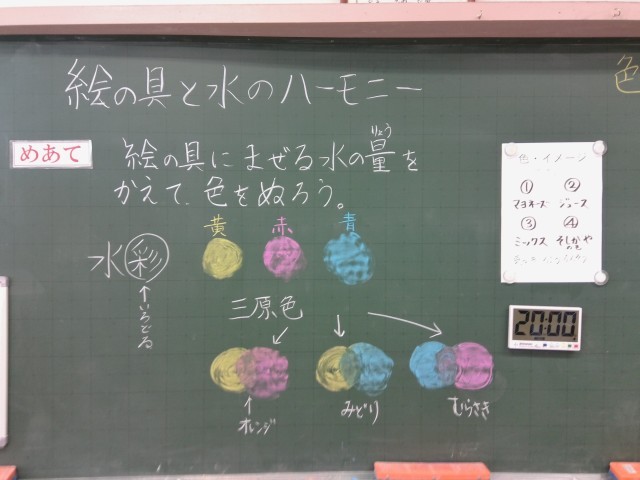 絵の具と水のハーモニー
色
めあて
絵の具にまぜる水の量を
りょう
かえて、色をぬろう。
黄 赤 青
水彩
↑いろどる
三原色
オレンジ
みどり
むらさき
色・イメージ
① ②
マヨネーズ ジュース
③ ④
ミックス そしかや
20:00